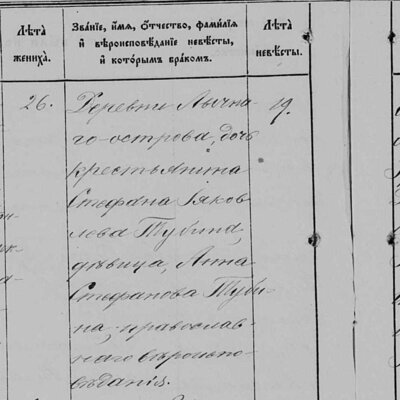 Лѣта жениха.
Званіе, имя, отчество, фамилія и вѣроисповѣданіе невѣсты, и которымъ бракомъ.
Лѣта невѣсты.
26.
Деревни Лычна-
го-острова, дочь
крестьянина
Стефана Іаков-
лева Тубина,
дѣвица, Анна
Стефанова Туби-
на, православ-
наго вѣроиспо-
вѣданія.
19.